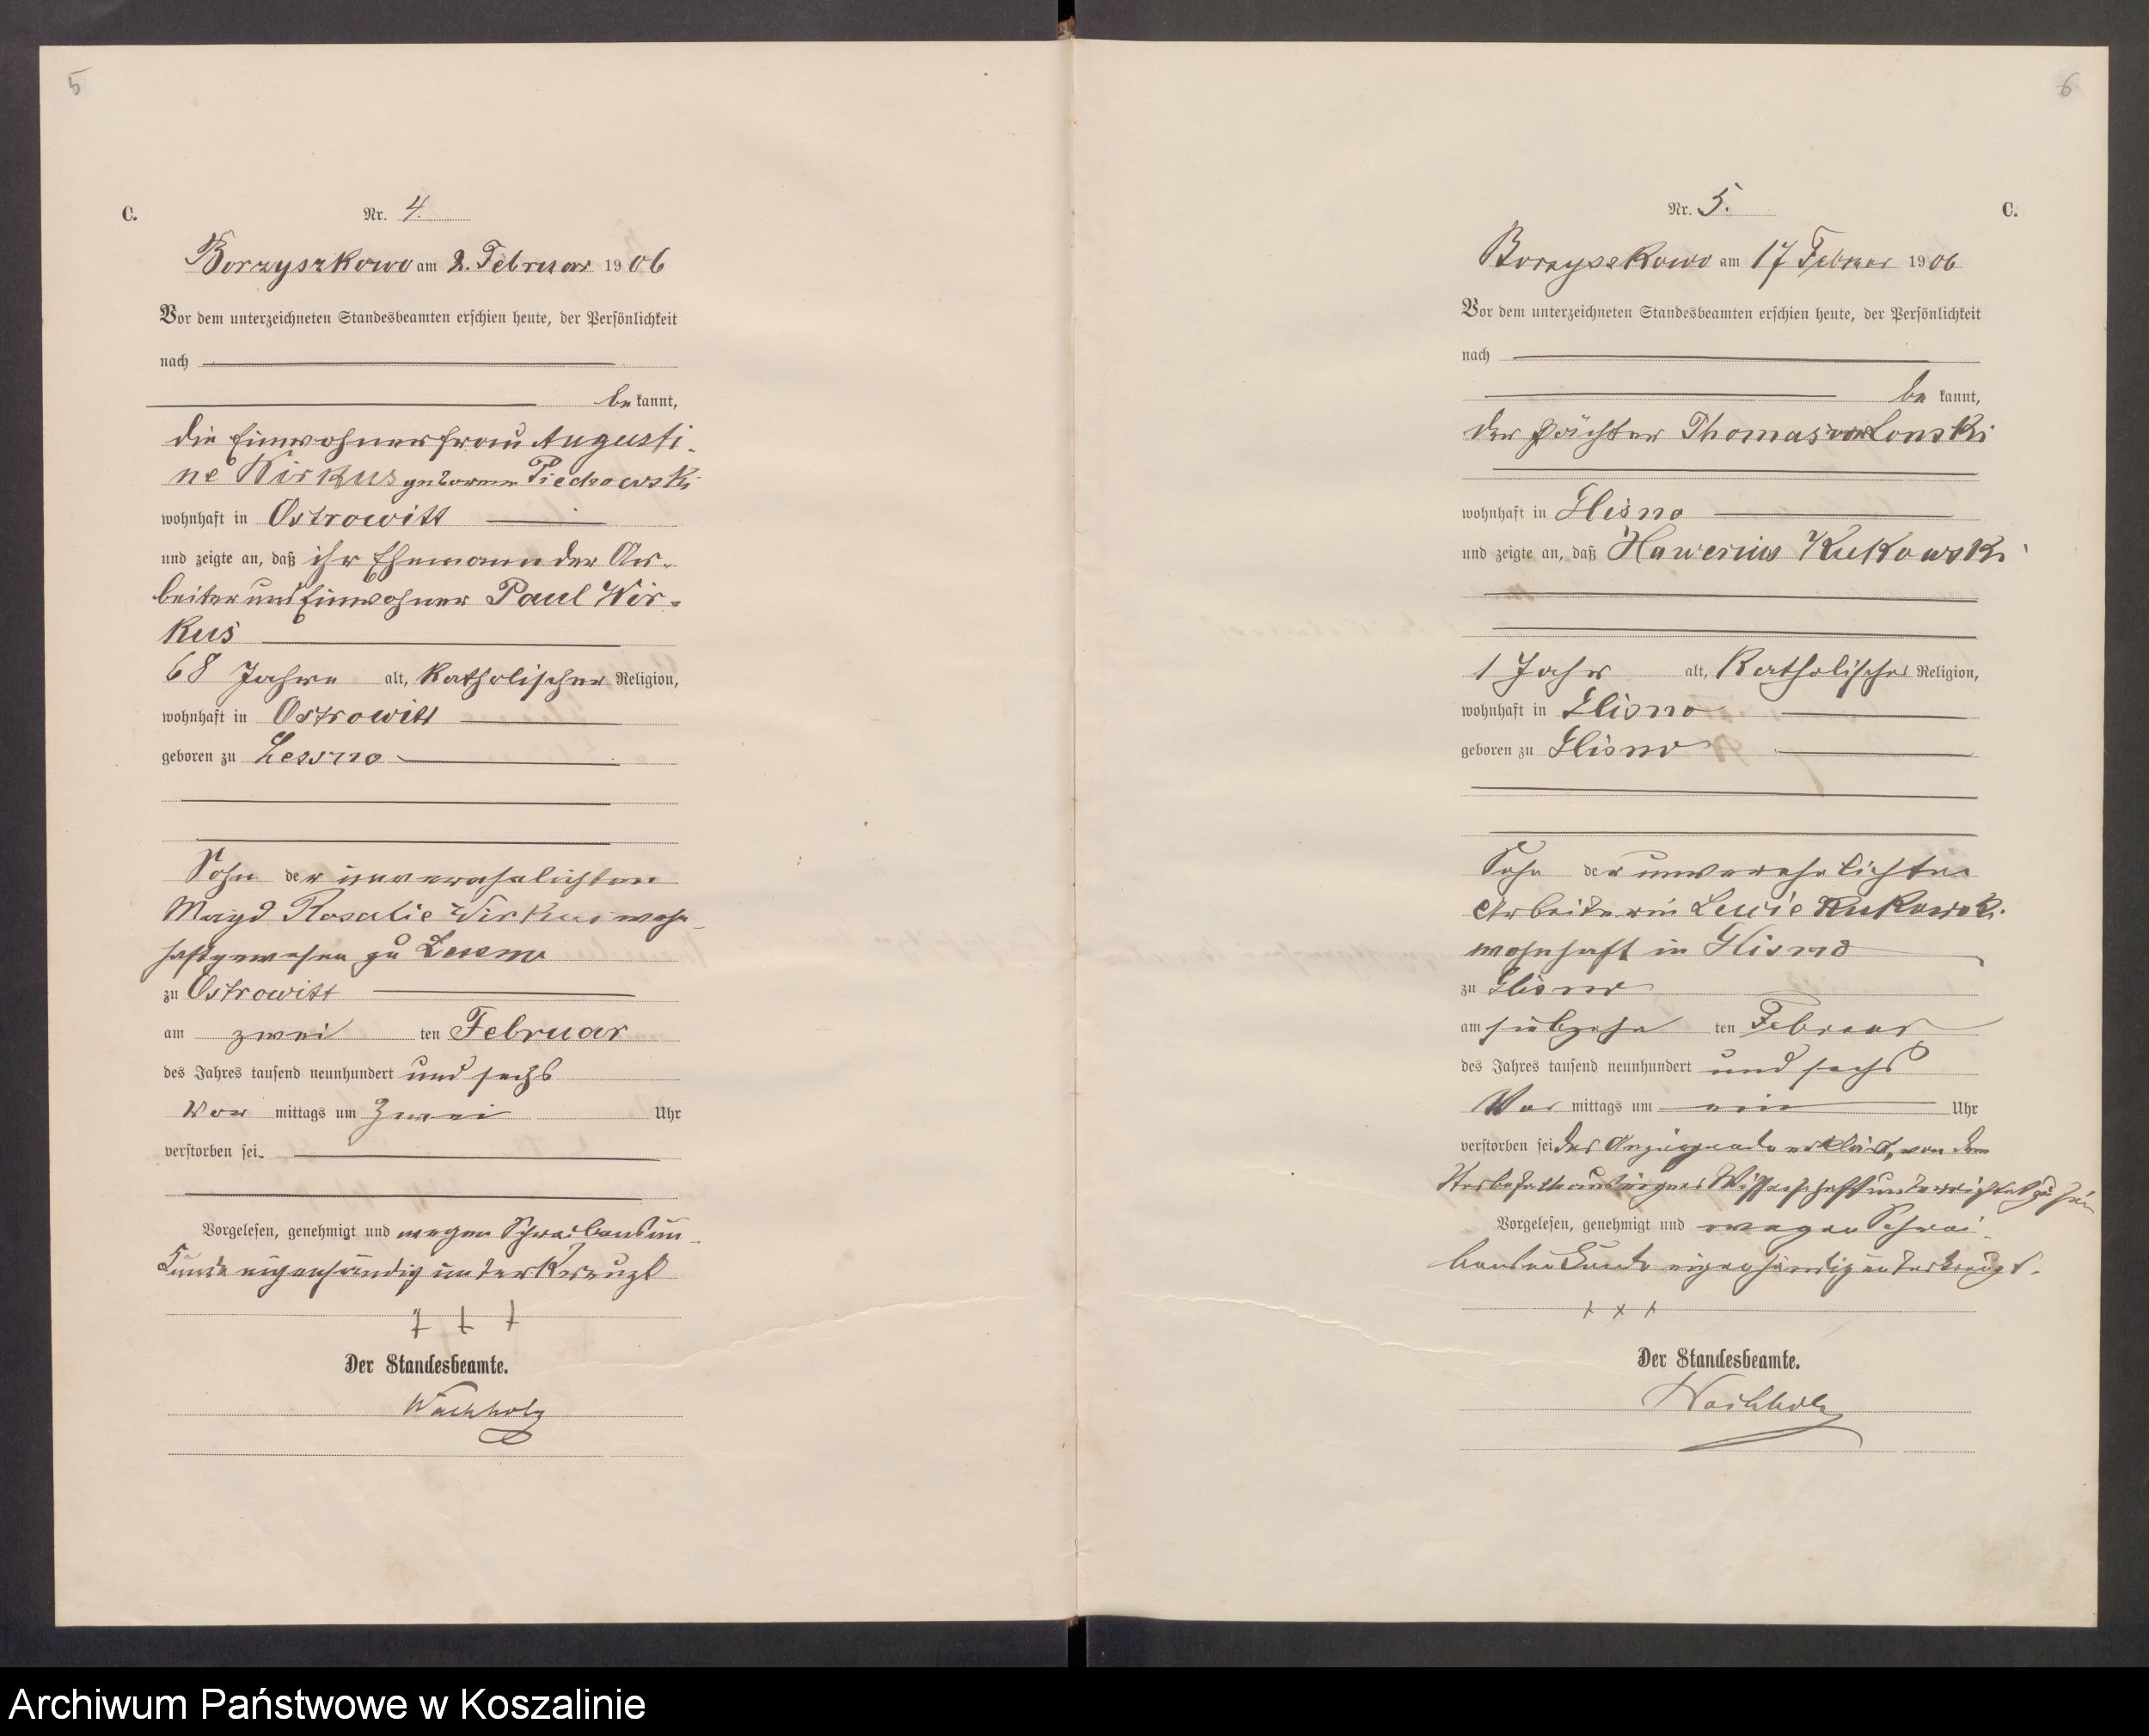 5
C.
Nr. 4.
Borzyszkowo am 2. Februar 1906
Vor dem unterzeichneten Standesbeamten erschien heute, der Persönlichkeit
nach
bekannt,
die Einwohnerfrau Augusti-
ne Wirkus geborene Piechowski
wohnhaft in Ostrowitt
und zeigte an, daß ihr Ehemann der Ar-
beiter und Einwohner Paul Wir-
kus
68 Jahre alt, katholischer Religion,
wohnhaft in Ostrowitt
geboren zu Lessno
Sohn der unverehelichten
Magd Rosalie Wirkus wohn-
haft gewesen zu Lessno
zu Ostrowitt
am zwei ten Februar
des Jahres tausend neunhundert und sechs
Vor mittags um zwei Uhr
verstorben sei.
Vorgelesen, genehmigt und wegen Schreibensun-
kunde eigenhändig unterkreuzt
Der Standesbeamte.
Wachholz
6
Nr. 5.
C.
Borzyszkowo am 17 Februar 1906
Vor dem unterzeichneten Standesbeamten erschien heute, der Persönlichkeit
nach
bekannt,
der Pächter Thomas von Lonski
wohnhaft in Glisno
und zeigte an, daß Xawerius Kukowski
1 Jahr alt, katholischer Religion,
wohnhaft in Glisno
geboren zu Glisno
Sohn der unverehelichten
Arbeiterin Kukowski
wohnhaft in Glisno
zu Glisno
am siebzehn ten Februar
des Jahres tausend neunhundert und sechs
Vor mittags um ein Uhr
verstorben sei der Anzeigende erklärt, von dem
Sterbefall aus eigner Wissenschaft unterrichtet zu sein
Vorgelesen, genehmigt und wegen Schrei-
bensunkunde eigenhändig unterkreuzt.
x x x
Der Standesbeamte.
Wachholz
Archiwum Państwowe w Koszalinie